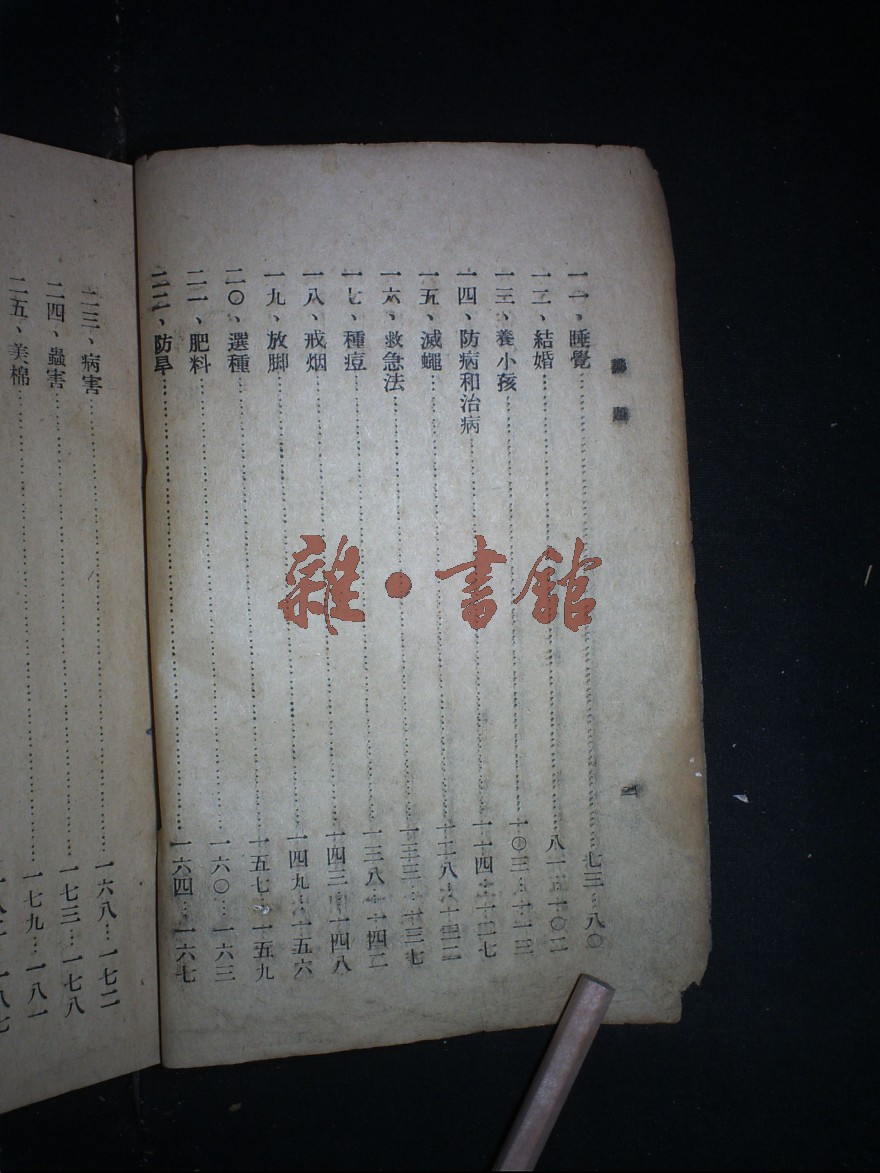 一一、睡覺……七三…八〇
一二、結婚……八一…一〇二
一三、養小孩……一〇三…一一三
一四、防病和治病……一一四…一二七
一五、滅蠅……一二八…一三二
一六、救急法……一三三…一三七
一七、種痘……一三八…一四二
一八、戒烟……一四三…一四八
一九、放脚……一四九…一五六
二〇、選種……一五七…一五九
二一、肥料……一六〇…一六三
二二、防旱……一六四…一六七
二三、病害……一六八…一七二
二四、蟲害……一七三…一七八
二五、美棉……一七九…一八一
雜·書館